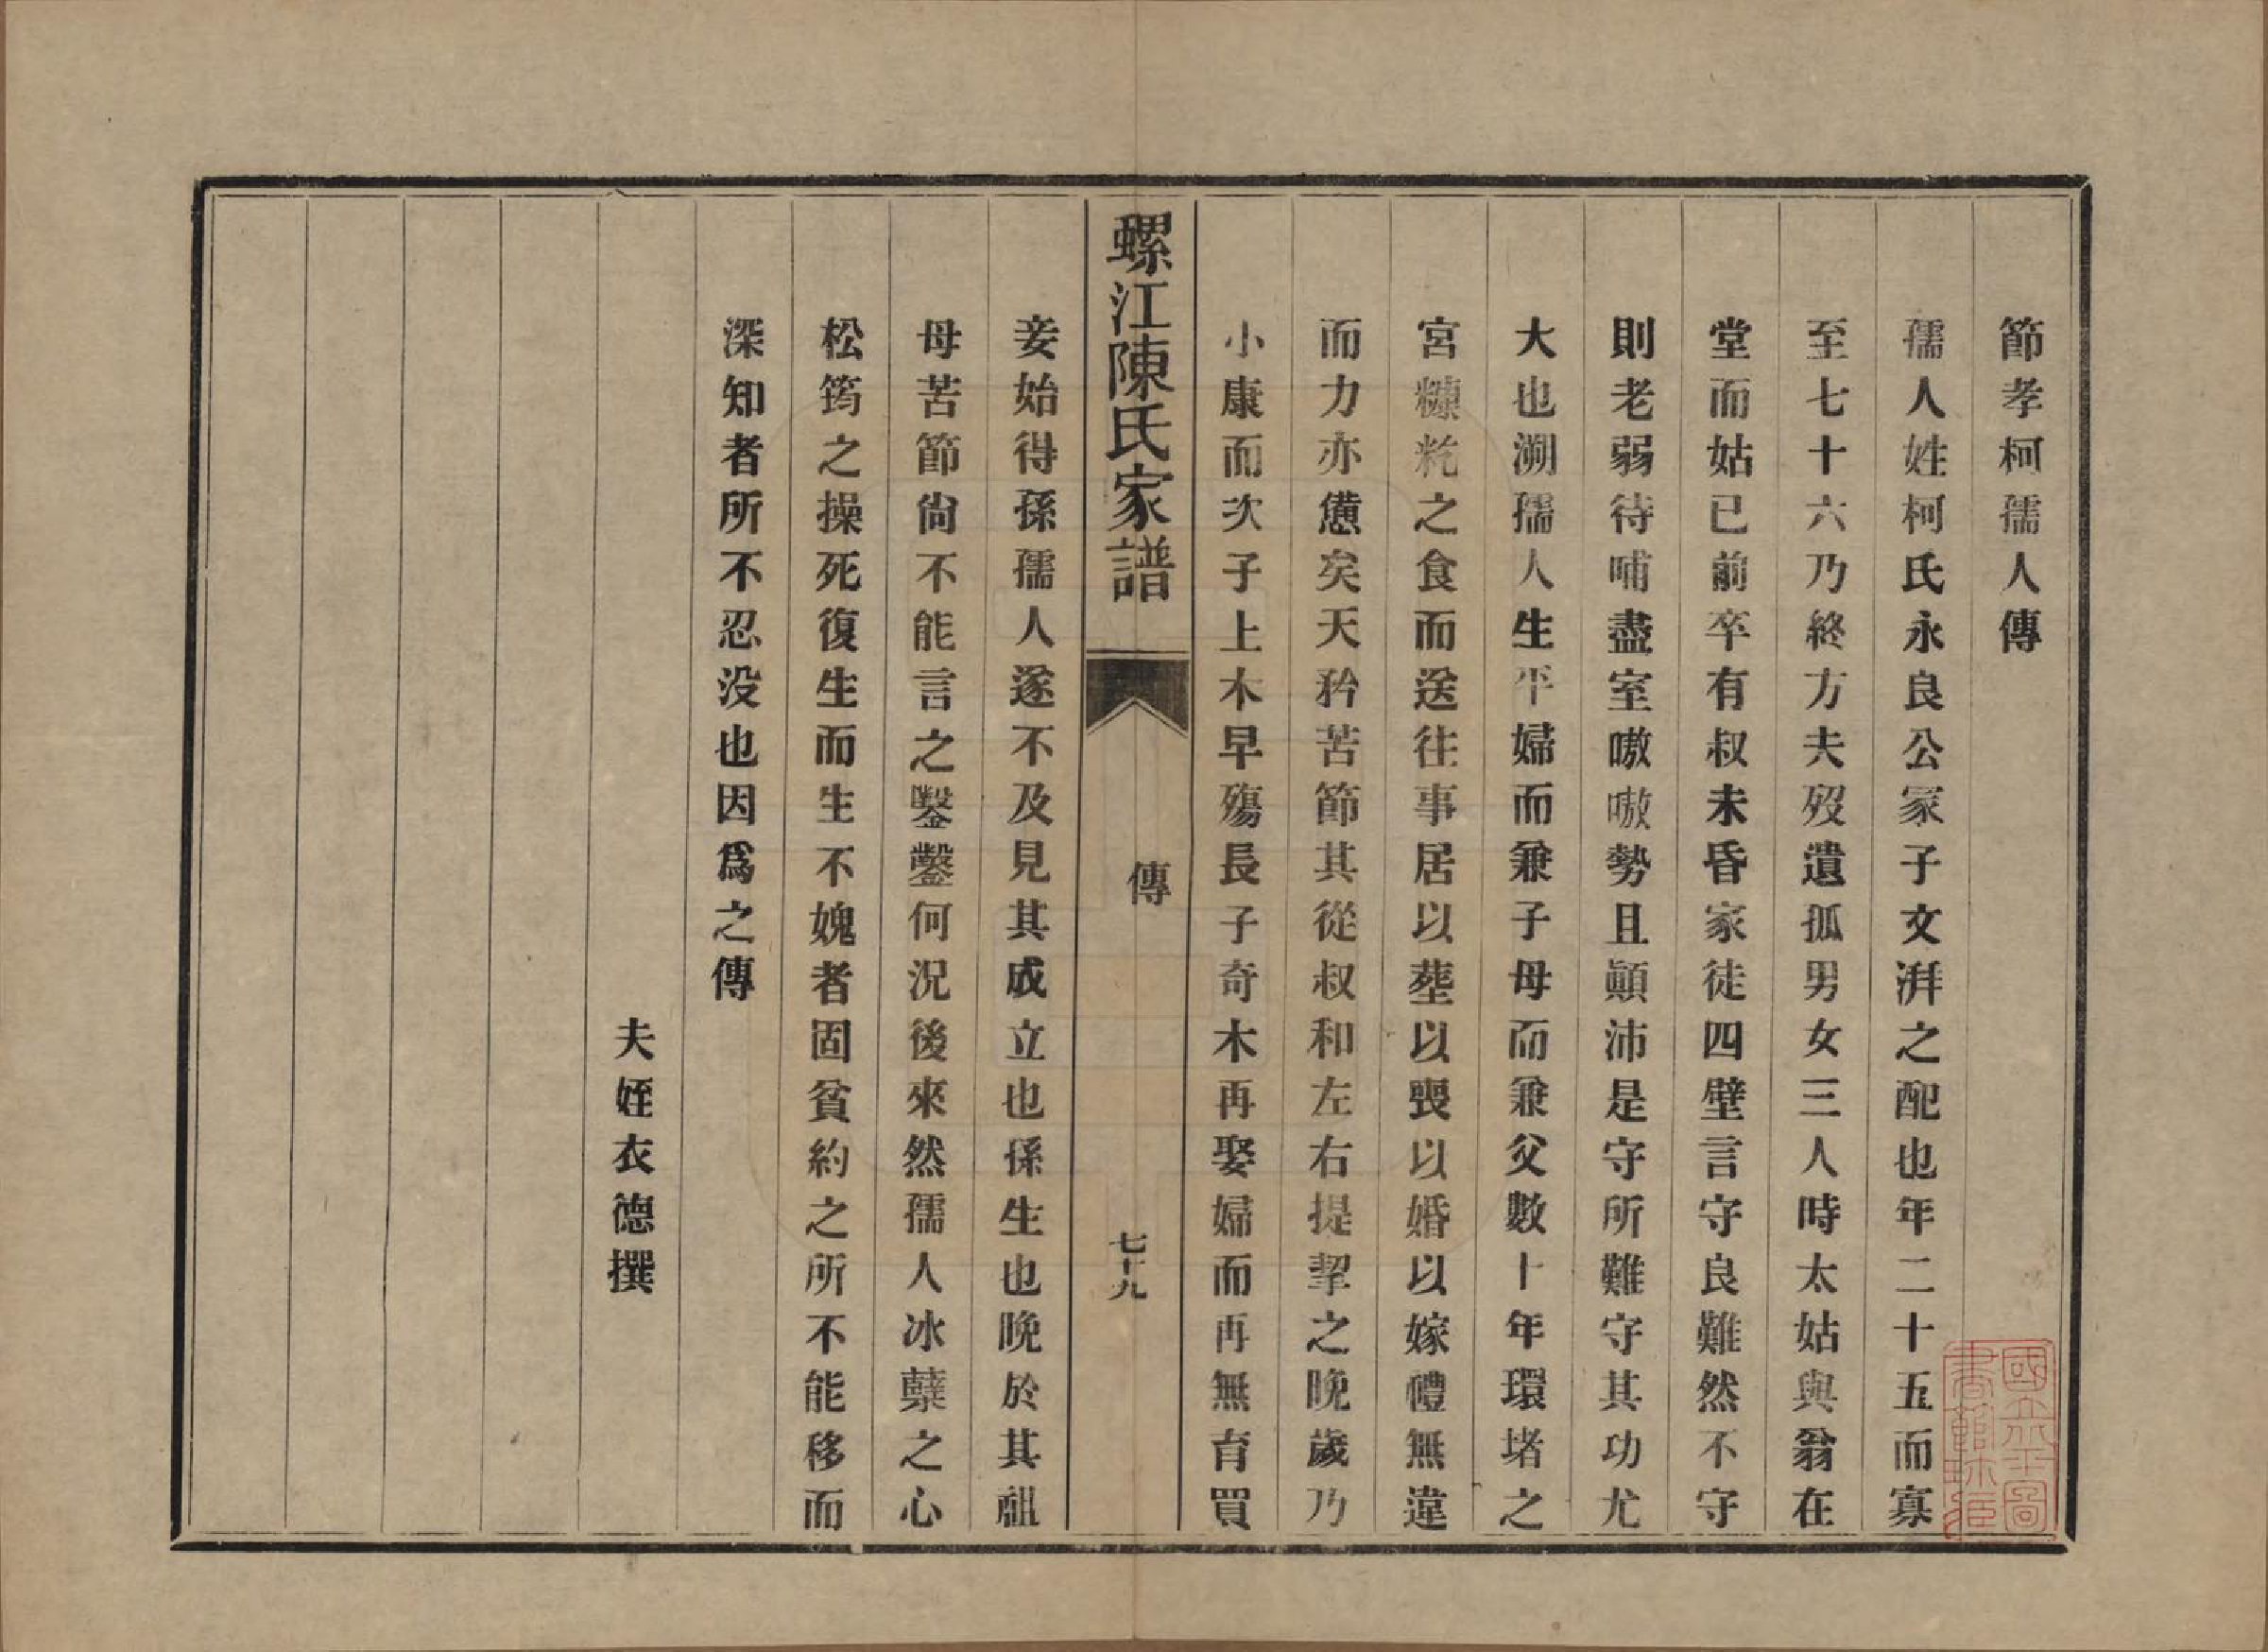 節孝柯孺人傳
孺人姓柯氏永良公冢子文湃之配也年二十五而寡
至七十六乃終方夫歿遺孤男女三人時太姑與翁在
堂而姑已前卒有叔未昏家徒四壁言守良難然不守
則老弱待哺盡室嗷嗷勢且顛沛是守所難守其功尤
大也溯孺人生平婦而兼子母而兼父數十年環堵之
宮糠籺之食而送往事居以葬以喪以婚以嫁禮無違
而力亦憊矣天矜苦節其從叔和左右提挈之晚歲乃
小康而次子上木早殤長子奇木再娶婦而再無育買
螺江陳氏家譜
傳
七十九
妾始得孫孺人遂不及見其成立也孫生也晚於其祖
母苦節尙不能言之鑿鑿何況後來然孺人冰蘗之心
松筠之操死復生而生不媿者固貧約之所不能移而
深知者所不忍没也因爲之傳
夫姪衣德撰
國立北平圖
書館珍藏